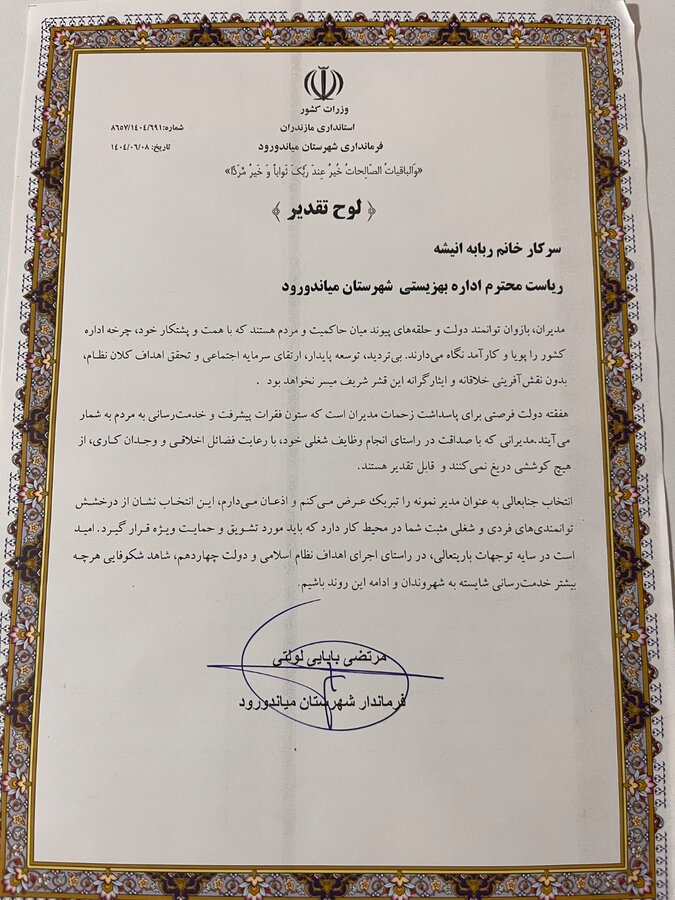 وزرات کشور
استانداری مازندران
فرمانداری شهرستان میاندورود
شماره:۸۶۵۷/۱۴۰۴/۶۹۱
تاریخ: ۱۴۰۴/۰۶/۰۸
«وَالباقیاتُ الصّالِحاتُ خَیرٌ عِندَ رَبِّکَ ثَواباً وَ خَیرٌ مَّرَدًّا»
﴿ لوح تقدیر ﴾
سرکار خانم ربابه انیشه
ریاست محترم اداره بهزیستی شهرستان میاندورود
مدیران، بازوان توانمند دولت و حلقه‌های پیوند میان حاکمیت و مردم هستند که با همت و پشتکار خود، چرخه اداره
کشور را پویا و کارآمد نگاه می‌دارند. بی‌تردید، توسعه پایدار، ارتقای سرمایه اجتماعی و تحقق اهداف کلان نظام،
بدون نقش‌آفرینی خلاقانه و ایثارگرانه این قشر شریف میسر نخواهد بود .
هفقته دولت فرصتی برای پاسداشت زحمات مدیران است که ستون فقرات پیشرفت و خدمت‌رسانی به مردم به شمار
می‌آیند.مدیرانی که با صداقت در راستای انجام وظایف شغلی خود، با رعایت فضائل اخلاقی و وجدان کاری، از
هیچ کوششی دریغ نمی‌کنند و قابل تقدیر هستند.
انتخاب جنابعالی به عنوان مدیر نمونه را تبریک عرض می‌کنم و اذعان می‌دارم، این انتخاب نشان از درخشش
توانمندی‌های فردی و شغلی مثبت شما در محیط کار دارد که باید مورد تشویق و حمایت ویژه قرار گیرد. امید
است در سایه توجهات باریتعالی، در راستای اجرای اهداف نظام اسلامی و دولت چهاردهم، شاهد شکوفایی هرچه
بیشتر خدمت‌رسانی شایسته به شهروندان و ادامه این روند باشیم.
مرتضی بابایی لولتی
فرماندار شهرستان میاندورود